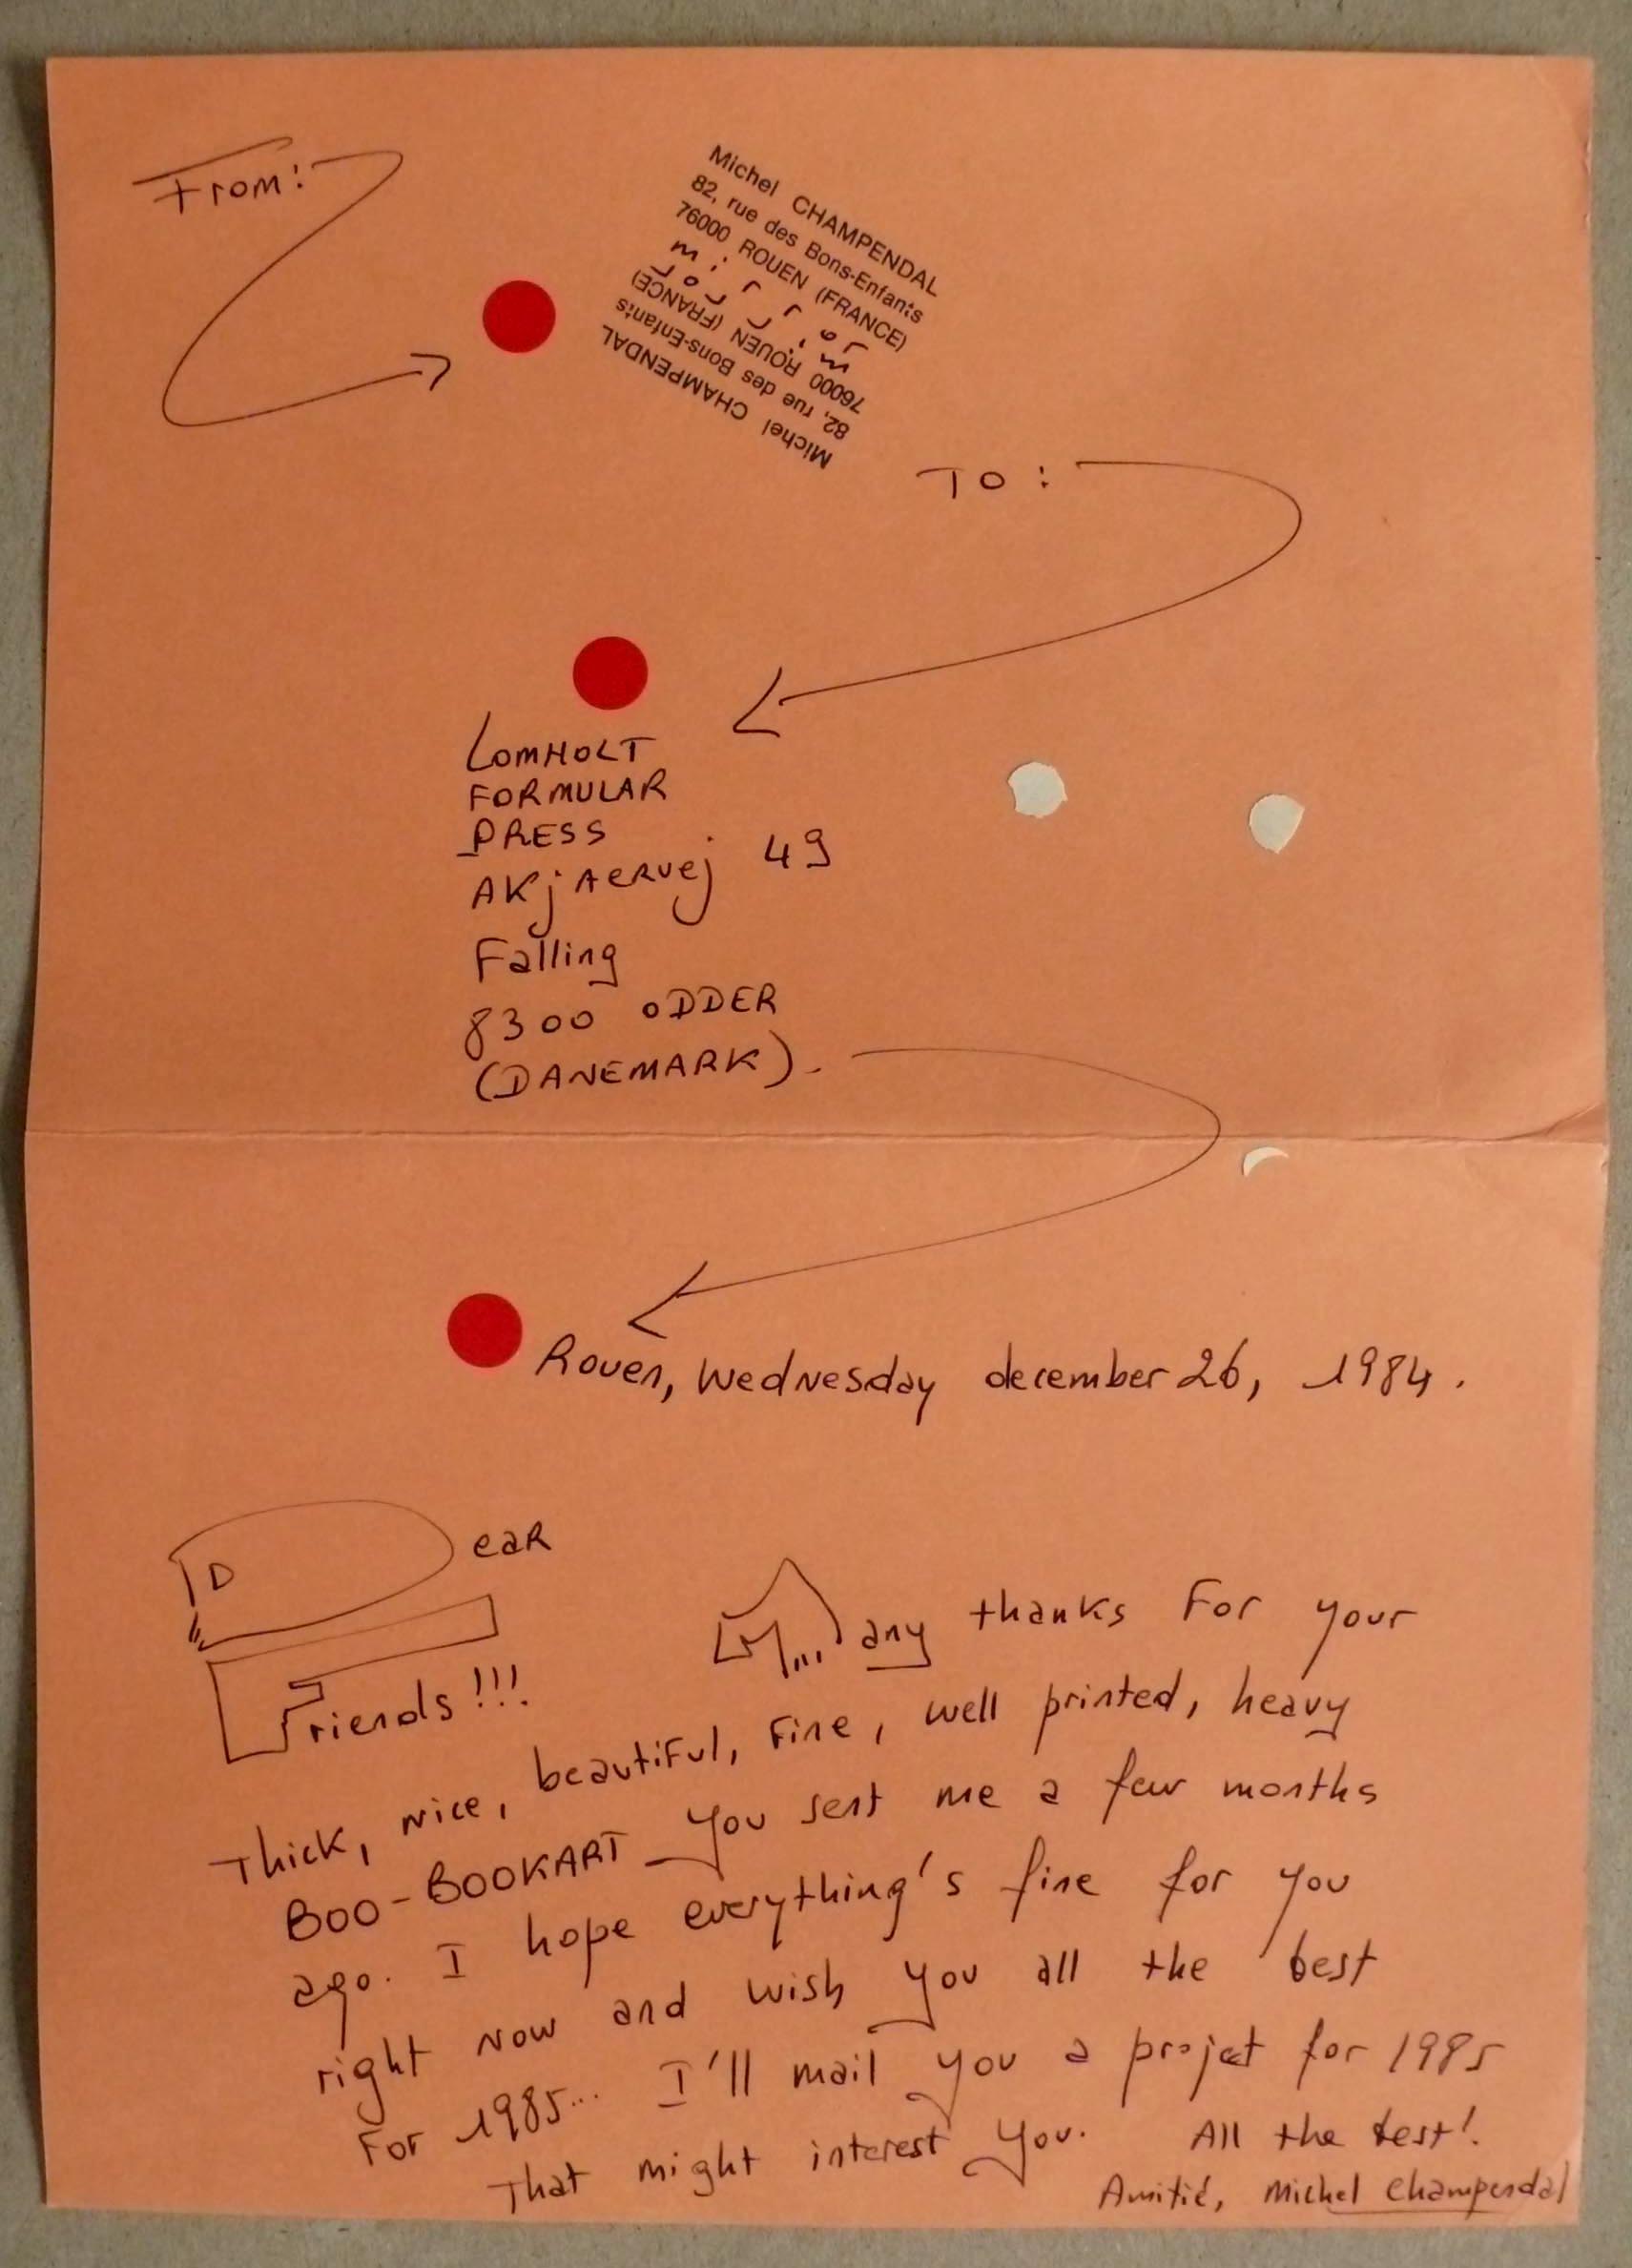 From:
Michel CHAMPENDAL
82, rue des Bons-Enfants
76000 ROUEN (FRANCE)
mirror
76000 ROUEN (FRANCE)
82, rue des Bons-Enfants
Michel CHAMPENDAL
TO:
LOMHOLT
FORMULAR
PRESS
AKjAERVej 49
Falling
8300 ODDER
(DANEMARK).
Rouen, Wednesday december 26, 1984.
Dear
Friends!!!
M...any thanks For your
Thick, nice, beautiful, Fine, well printed, heavy
BOO-BOOKART you sent me a few months
ago. I hope everything's fine for you
right now and wish you all the best
For 1985... I'll mail you a projet for 1985
That might interest you. All the best!
Amitié, Michel Champendal